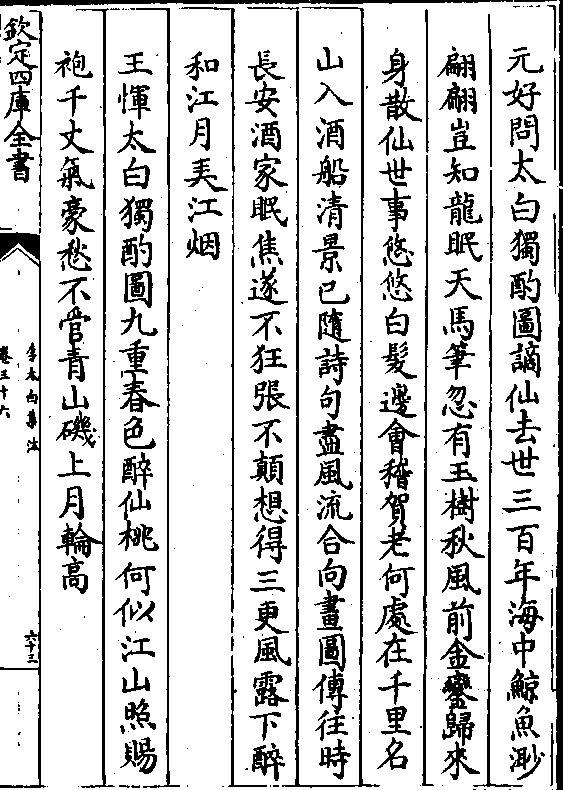 元好問太白獨酌圖謫仙去世三百年海中鯨魚渺
翩翩豈知龍眠天馬筆忽有玉樹秋風前金鑾歸來
身散仙世事悠悠白髮邊會稽賀老何處在千里名
山入酒船清景已隨詩句盡風流合向畫圖傳往時
長安酒家眠焦遂不狂張不顛想得三更風露下醉
和江月美江烟
王惲太白獨酌圖九重春色醉仙桃何似江山照賜
袍千丈氣豪愁不管青山磯上月輪高
欽定四庫全書
李太白集注
卷三十六
六十三